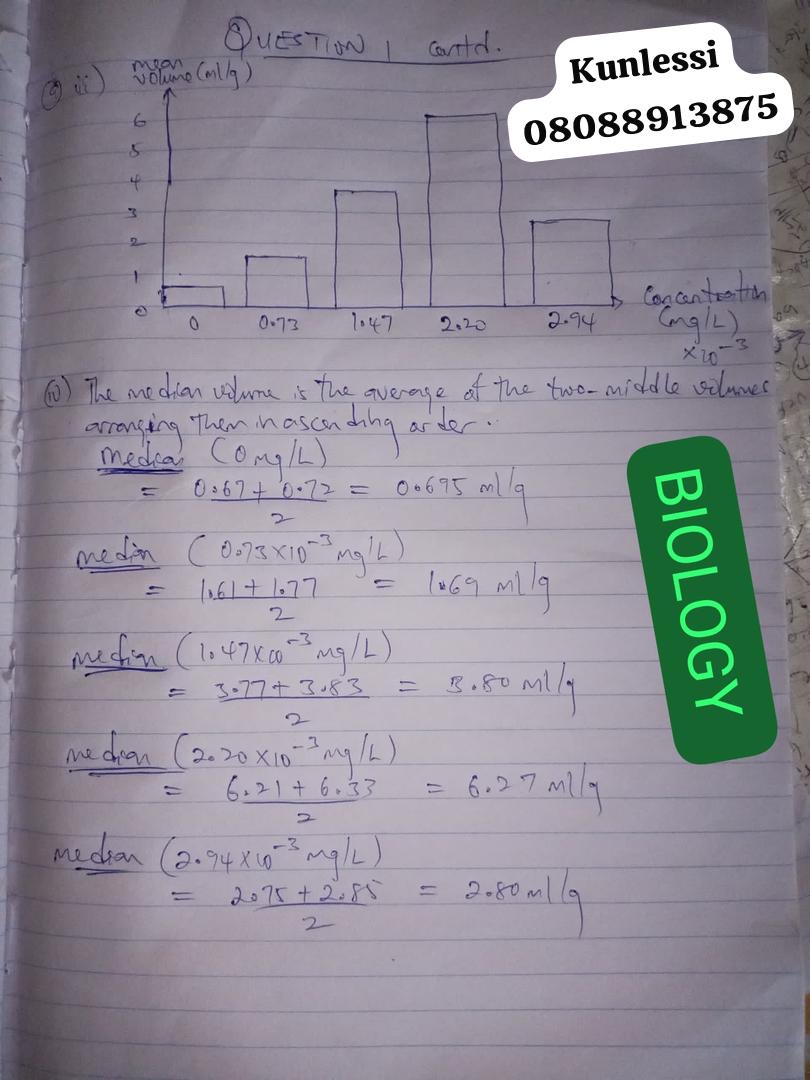 QUESTION 1 contd.
Kunlessi
08088913875
iii)
mean
volume (ml/g)
6
5
4
3
2
1
0
0 0.73 1.47 2.20 2.94
Concentration
(mg/L)
×10⁻³
(iv) The median volume is the average of the two-middle volumes
arranging them in ascending order.
median (0mg/L)
= 0.67 + 0.72 = 0.695 ml/g
2
median (0.73×10⁻³ mg/L)
= 1.61 + 1.77 = 1.69 ml/g
2
median (1.47×10⁻³ mg/L)
= 3.77 + 3.83 = 3.80 ml/g
2
median (2.20×10⁻³ mg/L)
= 6.21 + 6.33 = 6.27 ml/g
2
median (2.94×10⁻³ mg/L)
= 2.75 + 2.85 = 2.80 ml/g
2
BIOLOGY